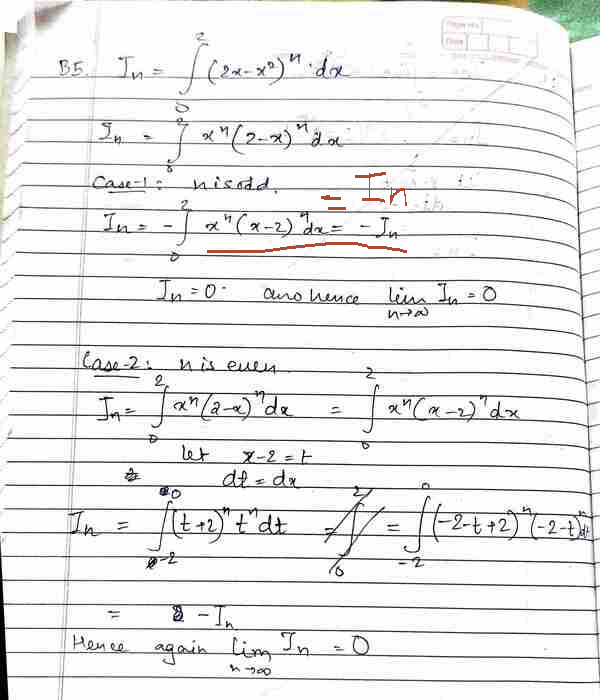 Page No.
Date
B5. Iₙ = ∫₀² (2x-x²)ⁿ · dx
Iₙ = ∫₀² xⁿ(2-x)ⁿ dx
Case-1: n is odd.
= Iₙ
Iₙ = -∫₀² xⁿ(x-2)ⁿ dx = -Iₙ
Iₙ = 0. and hence lim n→∞ Iₙ = 0
Case-2: n is even.
Iₙ = ∫₀² xⁿ(2-x)ⁿ dx = ∫₀² xⁿ(x-2)ⁿ dx
let x-2 = t
dt = dx
Iₙ = ∫₋₂⁰ (t+2)ⁿ tⁿ dt = ∫₀² = ∫₋₂⁰ (-2-t+2)ⁿ (-2-t)ⁿ dt
= -Iₙ
Hence again lim n→∞ Iₙ = 0